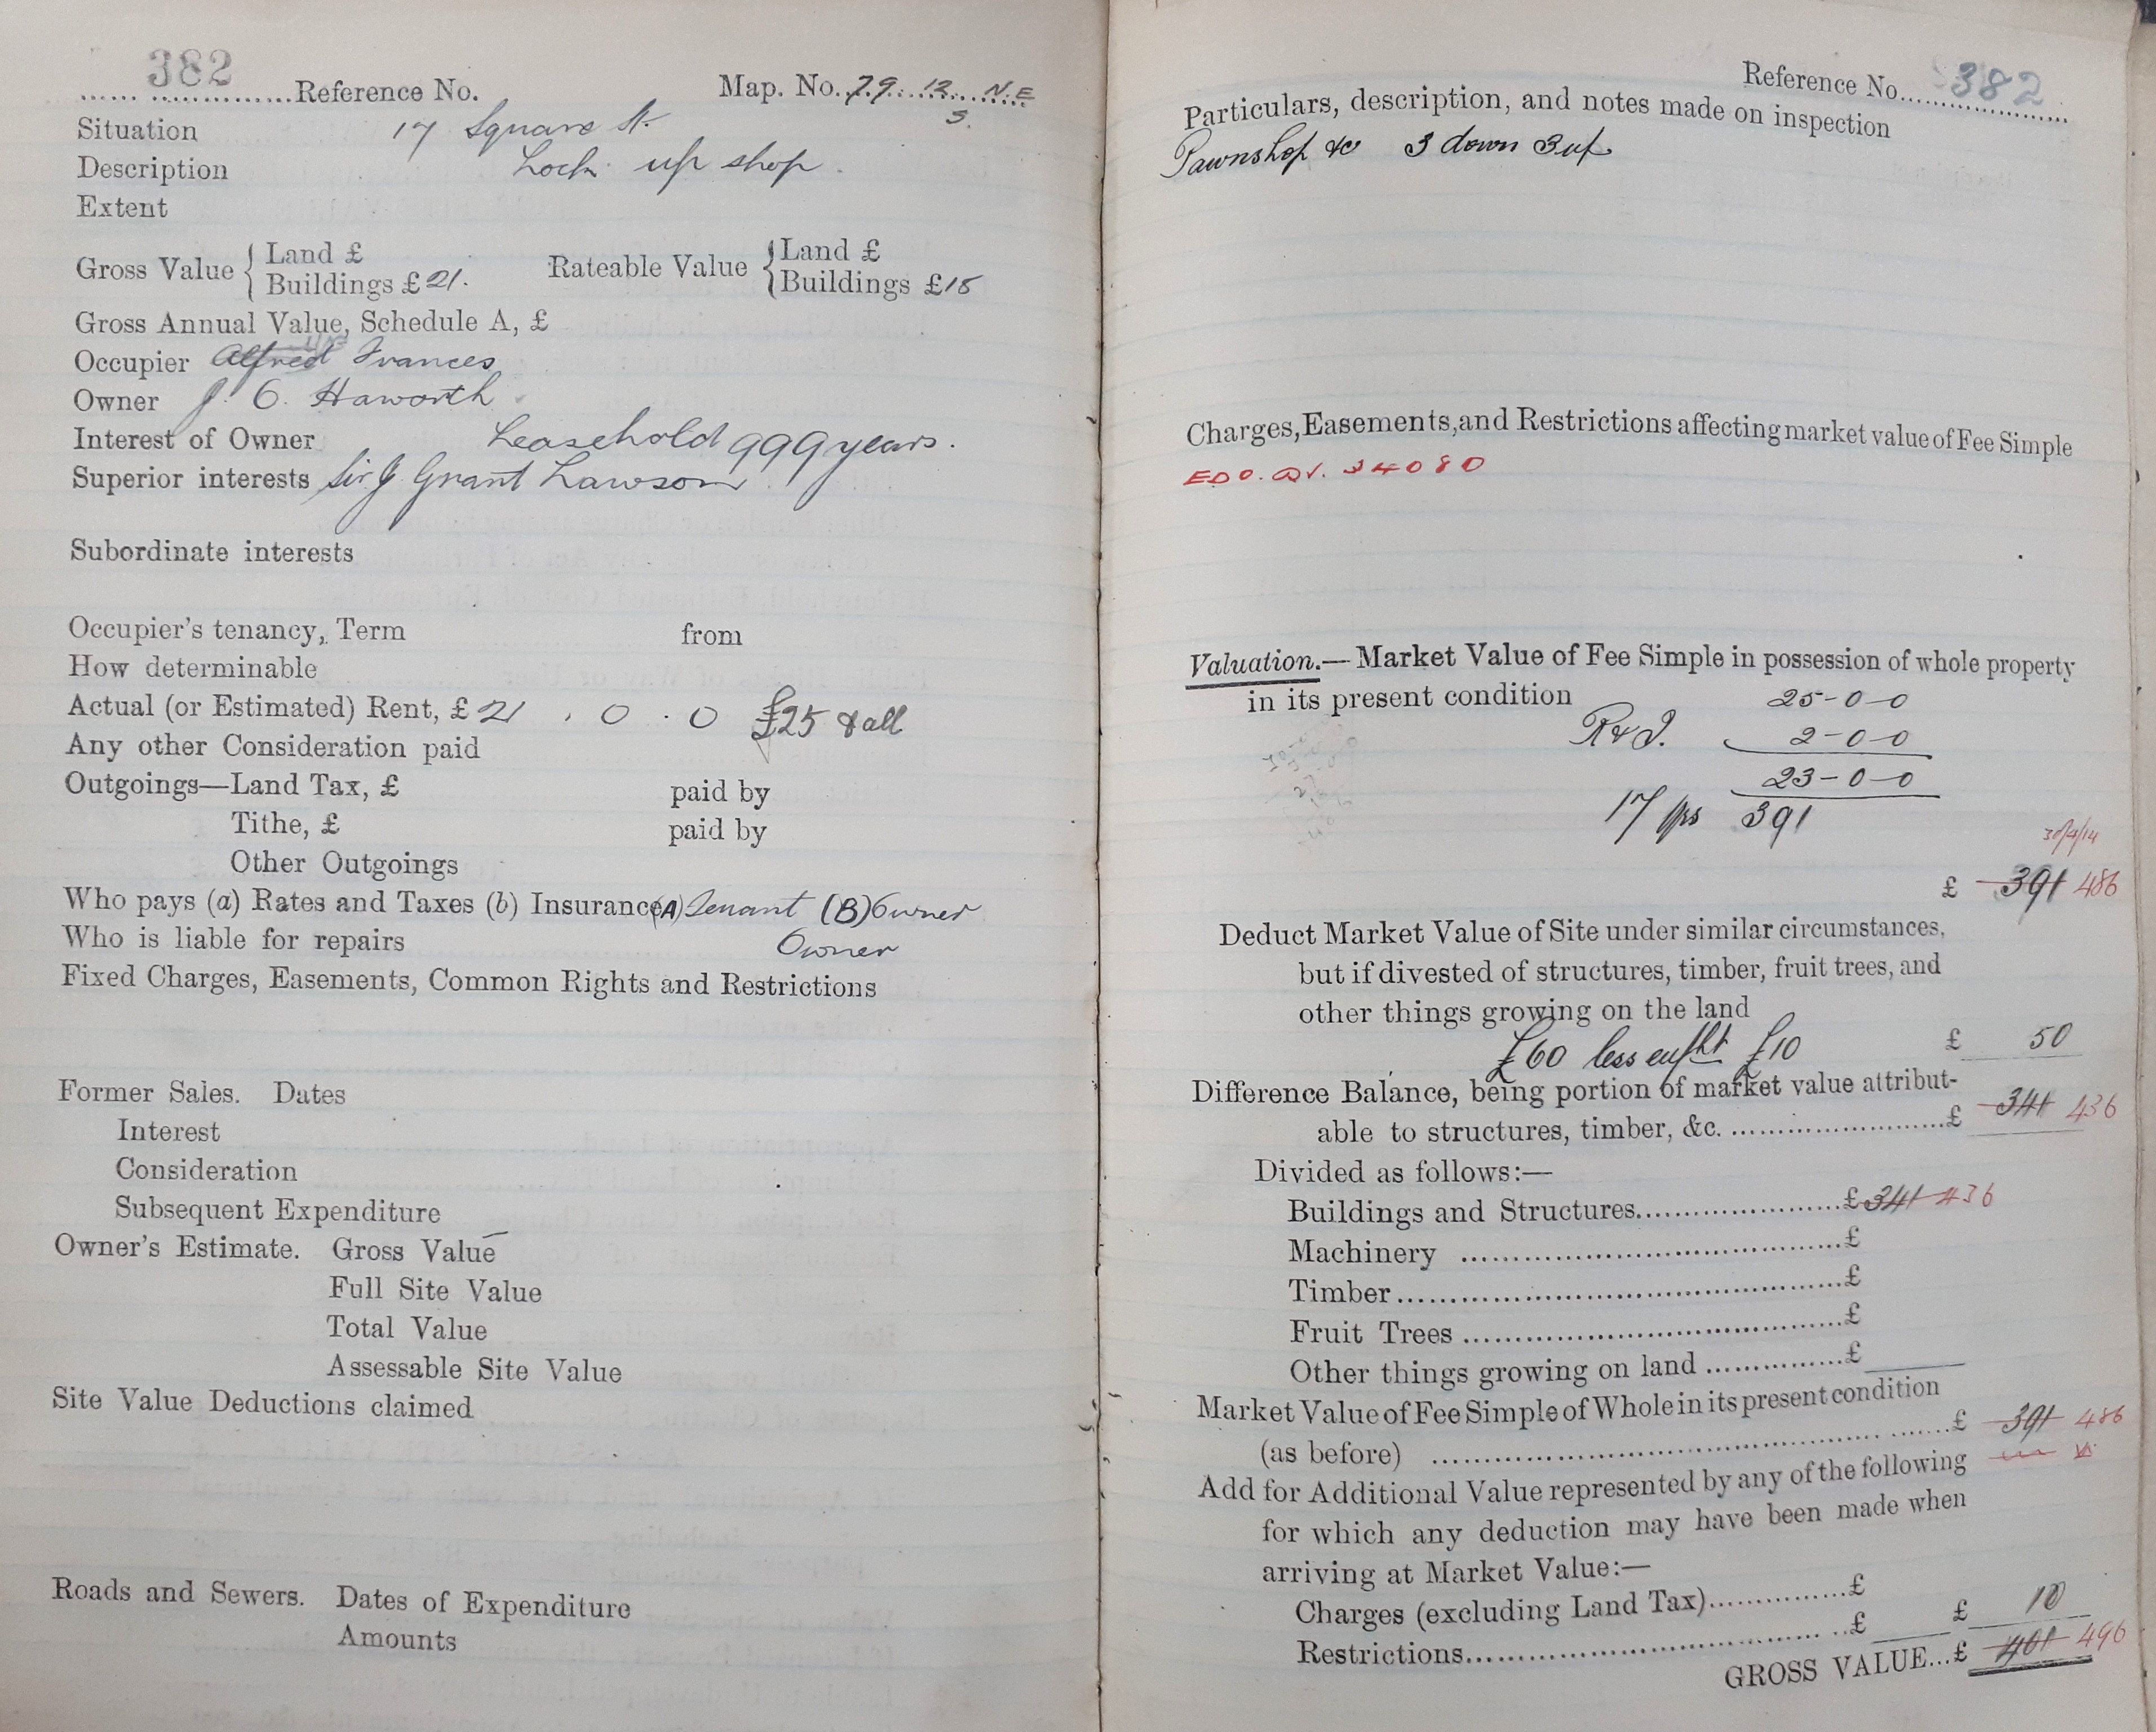 382 Reference No. Map. No. 79. 12. N.E
3.
Situation 17 Square St.
Description Lock up shop.
Extent
Gross Value { Land £ Rateable Value { Land £
Buildings £21. Buildings £18
Gross Annual Value, Schedule A, £
Occupier Alfred Frances
Owner J. C. Haworth
Interest of Owner Leasehold 999 years.
Superior interests Sir J Grant Lawson
Subordinate interests
Occupier's tenancy, Term from
How determinable
Actual (or Estimated) Rent, £ 21 . 0 . 0 £25 & all
Any other Consideration paid
Outgoings—Land Tax, £ paid by
Tithe, £ paid by
Other Outgoings
Who pays (a) Rates and Taxes (b) Insurance (A) Tenant (B) Owner
Who is liable for repairs Owner
Fixed Charges, Easements, Common Rights and Restrictions
Former Sales. Dates
Interest
Consideration
Subsequent Expenditure
Owner's Estimate. Gross Value
Full Site Value
Total Value
Assessable Site Value
Site Value Deductions claimed
Roads and Sewers. Dates of Expenditure
Amounts
Reference No. 382
Particulars, description, and notes made on inspection
Pawnshop &c 3 down 3 up
Charges, Easements, and Restrictions affecting market value of Fee Simple
34080
Valuation.—Market Value of Fee Simple in possession of whole property
in its present condition 25-0-0
R & I. 2-0-0
23-0-0
17 yrs 391
30/4/14
£ 391 486
Deduct Market Value of Site under similar circumstances,
but if divested of structures, timber, fruit trees, and
other things growing on the land
£60 less £10 £ 50
Difference Balance, being portion of market value attribut-
able to structures, timber, &c. £ 341 436
Divided as follows:—
Buildings and Structures £ 341 436
Machinery £
Timber £
Fruit Trees £
Other things growing on land £
Market Value of Fee Simple of Whole in its present condition
(as before) £ 391 486
Add for Additional Value represented by any of the following
for which any deduction may have been made when
arriving at Market Value:—
Charges (excluding Land Tax) £
Restrictions £ £ 10
GROSS VALUE... £ 401 496